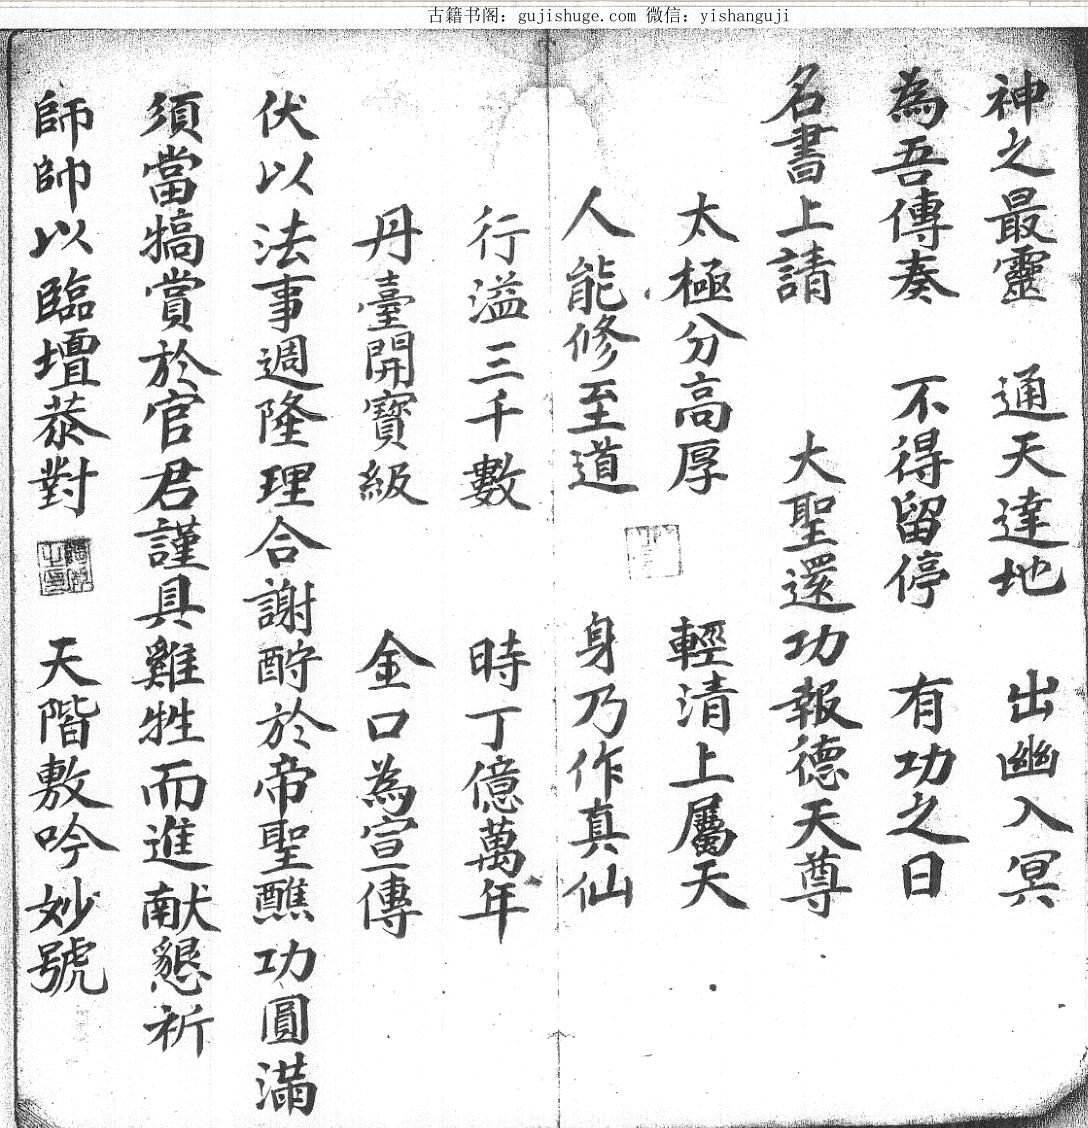 古籍书阁：gujishuge.com 微信：yishanguji
神之最靈 通天達地 出幽入冥
為吾傳奏 不得留停 有功之日
名書上請 大聖還功報德天尊
太極分高厚 輕清上屬天
人能修至道 身乃作真仙
行溢三千數 時丁億萬年
丹臺開寶級 金口為宣傳
伏以法事週隆理合謝酧於帝聖醮功圓滿
須當犒賞於官君謹具雞牲而進献懇祈
師帥以臨壇恭對 天階敷吟妙號